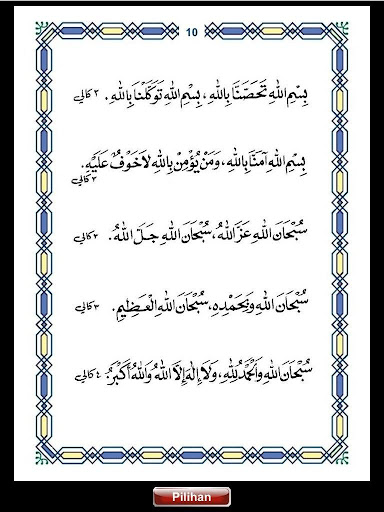 10
بِسْمِ اللهِ تَحَصَّنَّا بِاللهِ، بِسْمِ اللهِ تَوَكَّلْنَا بِاللهِ. ٣ كالي
بِسْمِ اللهِ آمَنَّا بِاللهِ، وَمَنْ يُؤْمِنْ بِاللهِ لَاخَوْفٌ عَلَيْهِ.
٣ كالي
سُبْحَانَ اللهِ عَزَّ اللهُ، سُبْحَانَ اللهِ جَلَّ اللهُ. ٣ كالي
سُبْحَانَ اللهِ وَبِحَمْدِهِ، سُبْحَانَ اللهِ الْعَظِيْمِ. ٣ كالي
سُبْحَانَ اللهِ وَالْحَمْدُ لِلّٰهِ، وَلَا إِلٰهَ إِلَّا اللهُ وَاللهُ أَكْبَرُ. ٤ كالي
Pilihan